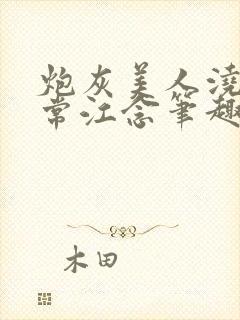 炮灰美人浇
常江念笔趣
木田